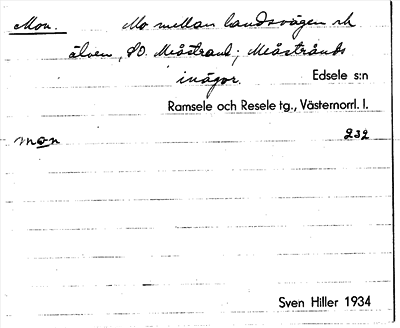 Mon. Mo mellan landsvägen och
älven, SO. Meåstrand; Meåstrands
inägor. Edsele s:n
Ramsele och Resele tg., Västernorrl. l.
mon 232
Sven Hiller 1934